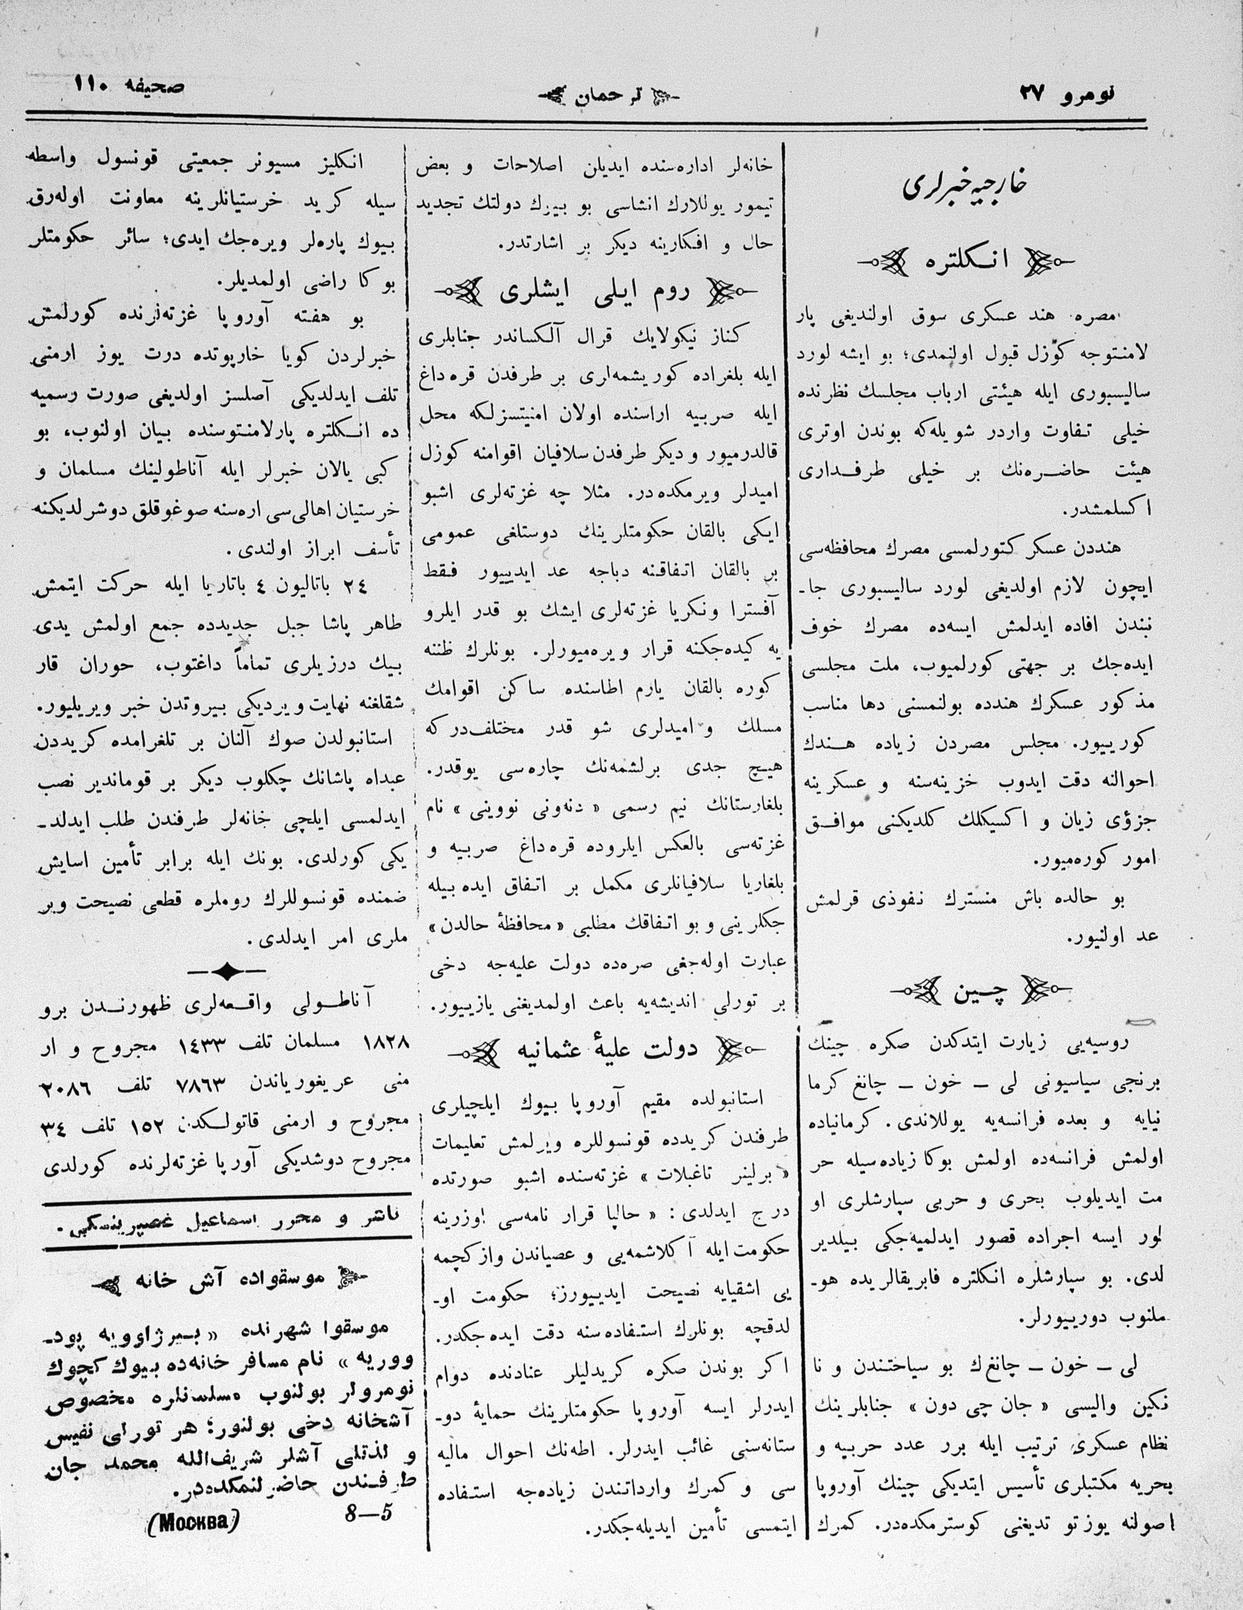 نومرو ٢٧
ترجمان
صحیفه ١١٠
خارجیه خبرلری
انكلتره
مصره هند عسكری سوق اولندیغی پار
لامنتوجه كوزل قبول اولنمدی؛ بو ایشه لورد
سالیسبوری ایله هیئتی ارباب مجلسك نظرنده
خیلی تفاوت واردر شویله‌كه بوندن اوتری
هیئت حاضره‌نك بر خیلی طرفداری
اكسلمشدر.
هنددن عسكر كتورلمسی مصرك محافظه‌سی
ایچون لازم اولدیغی لورد سالیسبوری جا-
نبندن افاده ایدلمش ایسه‌ده مصرك خوف
ایده‌جك بر جهتی كورلمیوب، ملت مجلسی
مذكور عسكرك هندده بولنمسنی دها مناسب
كورییور. مجلس مصردن زیاده هندك
احوالنه دقت ایدوب خزینه‌سنه و عسكرینه
جزؤی زیان و اكسیكلك كلدیكنی موافق
امور كوره‌میور.
بو حالده باش منسترك نفوذی قرلمش
عد اولنیور.
چین
روسیه‌یی زیارت ایتدكدن صكره چینك
برنجی سیاسیونی لی – خون – چانغ كرما
نیایه و بعده فرانسه‌یه یوللاندی. كرمانیاده
اولمش فرانسه‌ده اولمش بوكا زیاده‌سیله حر
مت ایدیلوب بحری و حربی سپارشلری او
لور ایسه اجراده قصور ایدلمیه‌جكی بیلدیر
لدی. بو سپارشلره انكلتره فابریقالریده هو-
ملنوب دورییورلر.
لی – خون – چانغ‌ك بو سیاحتندن و نا
نكین والیسی «جان چی دون» جنابلرینك
نظام عسكری ترتیب ایله برر عدد حربیه و
بحریه مكتبلری تأسیس ایتدیكی چینك آوروپا
اصولنه یوزتو تدیغنی كوسترمكده‌در. كمرك
خانه‌لر اداره‌سنده ایدیلن اصلاحات و بعض
تیمور یوللارك انشاسی بو بیرك دولتك تجدید
حال و افكارینه دیكر بر اشارتدر.
روم ایلی ایشلری
كناز نیكولایك قرال آلكساندر جنابلری
ایله بلغراده كوریشمه‌لری بر طرفدن قره‌داغ
ایله صربیه اراسنده اولان امنیتسزلكه محل
قالدرمیور و دیكر طرفدن سلافیان اقوامنه كوزل
امیدلر ویرمكده‌در. مثلا چه غزته‌لری اشبو
ایكی بالقان حكومتلرینك دوستلغی عمومی
بر بالقان اتفاقنه دباجه عد ایدییور فقط
آفسترا ونكریا غزته‌لری ایشك بو قدر ایلرو
یه كیده‌جكنه قرار ویره‌میورلر. بونلرك ظننه
كوره بالقان یارم اطاسنده ساكن اقوامك
مسلك و امیدلری شو قدر مختلف‌دركه
هیچ جدی برلشمه‌نك چاره‌سی یوقدر.
بلغارستانك نیم رسمی «دنه‌ونی نووینی» نام
غزته‌سی بالعكس ایلروده قره‌داغ صربیه و
بلغاریا سلافیانلری مكمل بر اتفاق ایده‌بیله
جكلرینی و بو اتفاقك مطلبی «محافظهٔ حالدن»
عبارت اوله‌جغی صره‌ده دولت علیه‌جه دخی
بر تورلی اندیشه‌یه باعث اولمدیغنی یازییور.
دولت علیهٔ عثمانیه
استانبولده مقیم آوروپا بیوك ایلچیلری
طرفندن كریدده قونسوللره ویرلمش تعلیمات
«برلینر تاغبلات» غزته‌سنده اشبو صورتده
درج ایدلدی: «حالپا قرار نامه‌سی اوزرینه
حكومت ایله آكلاشمه‌یی و عصیاندن وازكچمه
یی اشقیایه نصیحت ایدییورز؛ حكومت او-
لدقچه بونلرك استفاده‌سنه دقت ایده‌جكدر.
اكر بوندن صكره كریدلیلر عنادنده دوام
ایدرلر ایسه آوروپا حكومتلرینك حمایهٔ دو-
ستانه‌سنی غائب ایدرلر. اطه‌نك احوال مالیه
سی و كمرك وارداتندن زیاده‌جه استفاده
ایتمسی تأمین ایدیله‌جكدر.
انكلیز مسیونر جمعیتی قونسول واسطه
سیله كرید خرستیانلرینه معاونت اوله‌رق
بیوك پاره‌لر ویره‌جك ایدی؛ سائر حكومتلر
بوكا راضی اولمدیلر.
بو هفته آوروپا غزته‌لرنده كورلمش
خبرلردن كویا خارپوتده درت یوز ارمنی
تلف ایدلدیكی آصلسز اولدیغی صورت رسمیه
ده انكلتره پارلامنتوسنده بیان اولنوب، بو
كبی یالان خبرلر ایله آناطولینك مسلمان و
خرستیان اهالی‌سی اره‌سنه صوغوقلق دوشرلدیكنه
تأسف ابراز اولندی.
٢٤ باتالیون ٤ باتاریا ایله حركت ایتمش
طاهر پاشا جبل جدیدده جمع اولمش یدی
بیك درزیلری تماماً داغتوب، حوران قار
شقلغنه نهایت ویردیكی بیروتدن خبر ویریلیور.
استانبولدن صوك آلنان بر تلغرامده كریددن
عبداه پاشانك چكلوب دیكر بر قوماندیر نصب
ایدلمسی ایلچی خانه‌لر طرفندن طلب ایدلد-
یكی كورلدی. بونك ایله برابر تأمین اسایش
ضمنده قونسوللرك روملره قطعی نصیحت ویر
ملری امر ایدلدی.
آناطولی واقعه‌لری ظهورندن برو
١٨٢٨ مسلمان تلف ١٤٣٣ مجروح و ار
منی عریغوریاندن ٧٨٦٣ تلف ٢٠٨٦
مجروح و ارمنی قاتولكدن ١٥٢ تلف ٣٤
مجروح دوشدیكی آوروپا غزته‌لرنده كورلدی
ناشر و محرر اسماعیل غصپرینسكی.
موسقواده آش خانه
موسقوا شهرنده «بیرژاوویه پود-
ووریه» نام مسافر خانه‌ده بیوك كچوك
نومرولر بولنوب مسلمانلره مخصوص
آشخانه دخی بولنور؛ هر تورلی نفیس
و لذتلی آشلر شریف‌الله محمد جان
طرفندن حاضرلنمكده‌در.
8—5
(Москва)